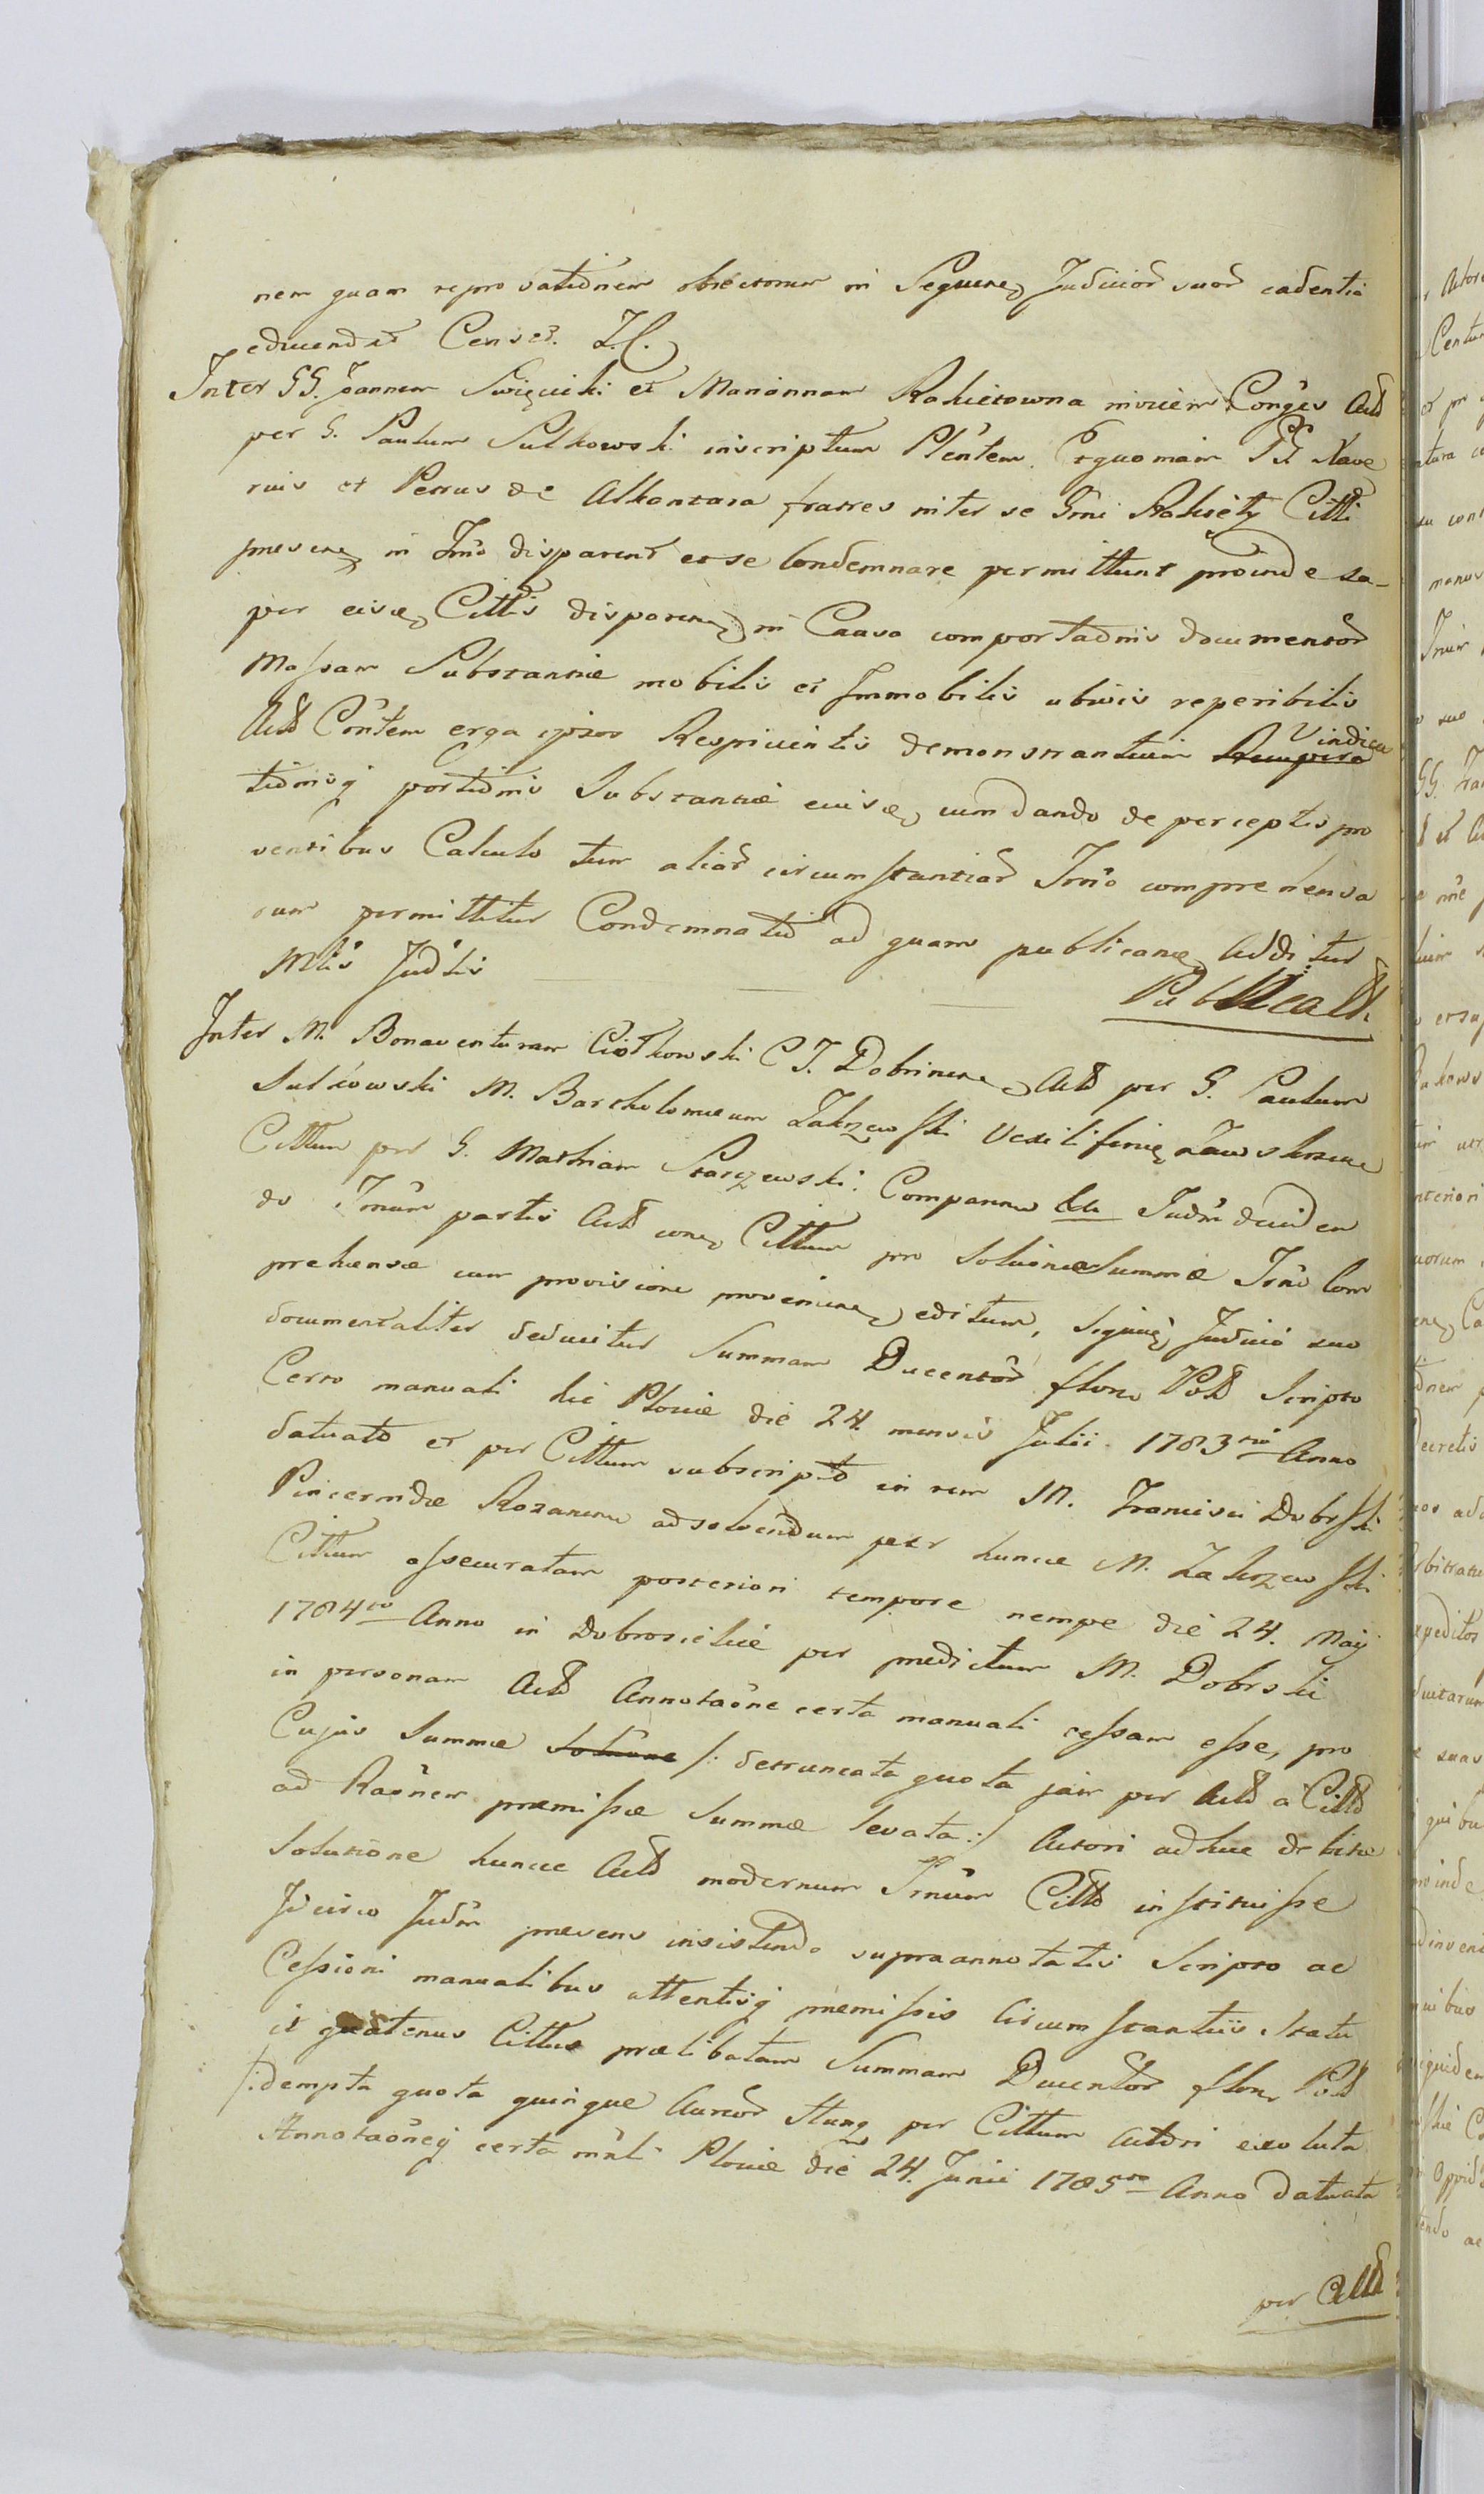 nem quam reprobationem obiectorum in Sequen Judicior suor cadentia
educendar Censet. L. C.
Inter GG. Joannem Swięcicki et Mariannam Rokicrowna invicem Conges Act
per G. Paulum Sutkowski inscriptum Plentem. Et quoniam GG Xave
rius et Petrus de Alkantara fratres inter se Grni Rokiety Citti
presens in Trno disparent et se Condemnare permittunt proinde su-
per eisd Cittis disparen in Causa comportationis documentor
Massam Substantiæ mobilis et Immobilis ubivis reperibilis
Act Contem erga ipsos Respicientis demonstrantium Vindica
tionisq portionis Substantiæ eiusd cum dando de perceptis pro
ventibus Calculo tum aliar circumstantiar Trno comprehensa
rum permittitur Condemnatio ad quam publicand Additur
Mlis Judlis Publicatt.
Inter M. Bonaventuram Ciołkowski C T. Dobrinens Act per G. Paulum
Sutkowski M. Bartholomeum Zakrzewski Vexiliferum Zawskrzens
Cittum per G. Mathiam Starzewski. Comparen Judm deciden
do Trnum partis Act con Cittum pro Solutione Summæ Trno Com
prehensæ cum provisione provenien editum, Siquid Judicio suo
documentaliter deducitur Summam Ducentor floren Pol Scripto
Certo manuali hic Plociæ die 24. mensis Julii. 1783tio Anno
datuato et per Cittum subscripto in rem M. Francisci Dobrski
Pincernidæ Rozanens ad solvendum per hunce M. Zakrzewski
Cittum assecuratam posteriori tempore nempe die 24. Maij
1784to Anno in Dobrosielice per predictum M. Dobrski
in personam Act Annotaone certa manuali cessam esse, pro
Cujus Summæ Solutione /: detruncata quota jam per Act a Citto
ad Raonem præmissæ Summæ levata :/ Actori adhuc debitæ
Solutione hunce Act modernum Trnum Citto instituisse
Idcirco Judm præsens insistendo supraannotatis Scripto ac
Cessioni manualibus attentisq præmissis Circumstantiis Statu
it quatenus Cittus prælibatam Summam Ducentor floren Pol
/: dempta quota quinque Aureor Hung per Cittum Actori exoluta
Annotaoneq certa mnli Plociæ die 24. Junii 1785to Anno datuata
per Citt